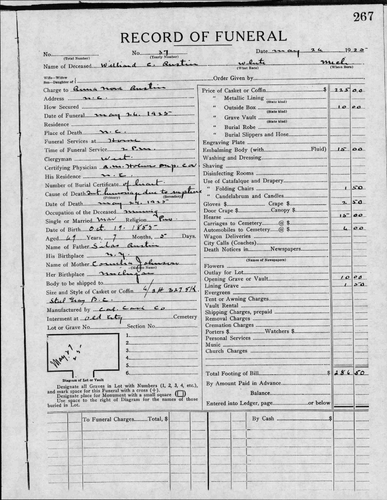 267
RECORD OF FUNERAL
No. No. 27 Date May 26 1925
(Total Number) (Yearly Number)
Name of Deceased Willard C. Austin White Mich
(What Race) (Where Born)
Charge to Austin
Address N.C.
How Secured
Date of Funeral May 26. 1925
Residence
Place of Death N.C.
Funeral Services at Home
Time of Funeral Service 2 P.M.
Clergyman West
Certifying Physician
His Residence N.C.
Number of Burial Certificate of heart
Cause of Death hemorrhage due to rupture
(Primary) (Secondary)
Date of Death May 24. 1925
Occupation of the Deceased Mining
Single or Married Mar Religion
Date of Birth Oct 19. 1855
Aged 69 Years, 7 Months, 5 Days.
Name of Father Silas Austin
His Birthplace N.Y.
Name of Mother Cornelia Johnson
Her Birthplace
Body to be shipped to
Size and Style of Casket or Coffin
Manufactured by Cal. Cask Co
Interment at Old City Cemetery
Lot or Grave No. Section No.
May 27
1.
2.
3.
4.
5.
6.
Diagram of Lot or Vault
Designate all Graves in Lot with Numbers (1, 2, 3, 4, etc.), and mark space for this Funeral with a cross (+).
Designate place for Monument with a small square
Use space to right of Diagram for the names of those buried in Lot.
To Funeral Charges, Total $
Order Given by
Price of Casket or Coffin $ 225 00
" Metallic Lining
(State Kind)
" Outside Box 10 00
(State Kind)
" Grave Vault
(State Kind)
" Burial Robe
(State Kind)
" Burial Slippers and Hose
Engraving Plate
Embalming Body (with Fluid) 15 00
Washing and Dressing
Shaving
Disinfecting Rooms
Use of Catafalque and Drapery
" Folding Chairs 1 50
" Candelabrum and Candles
Gloves $ Crape $ 2 50
Door Crape $ Canopy $
Hearse 12 00
Carriages to Cemetery @ $
Automobiles to Cemetery @ $ 6 00
Wagon Deliveries
City Calls (Coaches)
Death Notices in Newspapers
Flowers
Outlay for Lot
Opening Grave or Vault 10 00
Lining Grave 1 50
Evergreen
Tent or Awning Charges
Vault Rental
Shipping Charges, prepaid
Removal Charges
Cremation Charges
Porters $ Watchers $
Personal Services
Music
Church Charges
Total Footing of Bill $
By Amount Paid in Advance
Balance
Entered into Ledger, page or below
By Cash $